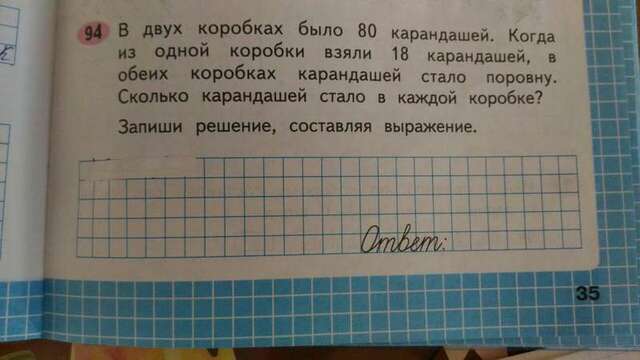 94 В двух коробках было 80 карандашей. Когда
из одной коробки взяли 18 карандашей, в
обеих коробках карандашей стало поровну.
Сколько карандашей стало в каждой коробке?
Запиши решение, составляя выражение.
Ответ:
35